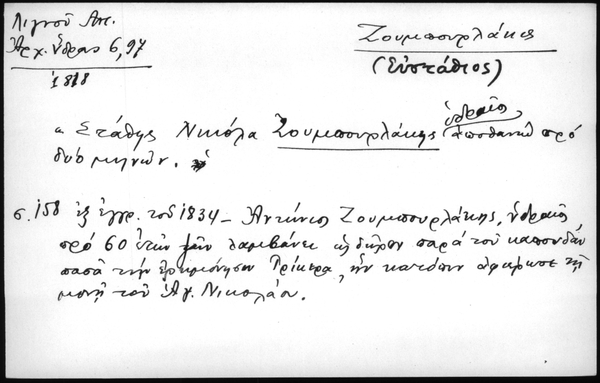 Λιγνοῦ Ἀντ.
Ἀρχ. Ὕδρας 6, 97
1818
Ζουμπουρλάκης
(Εὐστάθιος)
« Στάθης Νικόλα Ζουμπουρλάκης ὑδραῖος ἀποθανὼν πρό
δύο μηνῶν.
σ. 158 ἐξ ἐγγρ. τοῦ 1834 – Ἀντώνιος Ζουμπουρλάκης, ὑδραῖος
πρό 60 ἐτῶν λαμβάνει ὡς δῶρον παρά τοῦ καπουδάν
πασᾶ τήν ἐρημόνησον Τρίκερα, ἥν κατόπιν ἀφιέρωσε τῇ
μονῇ τοῦ Ἁγ. Νικολάου.